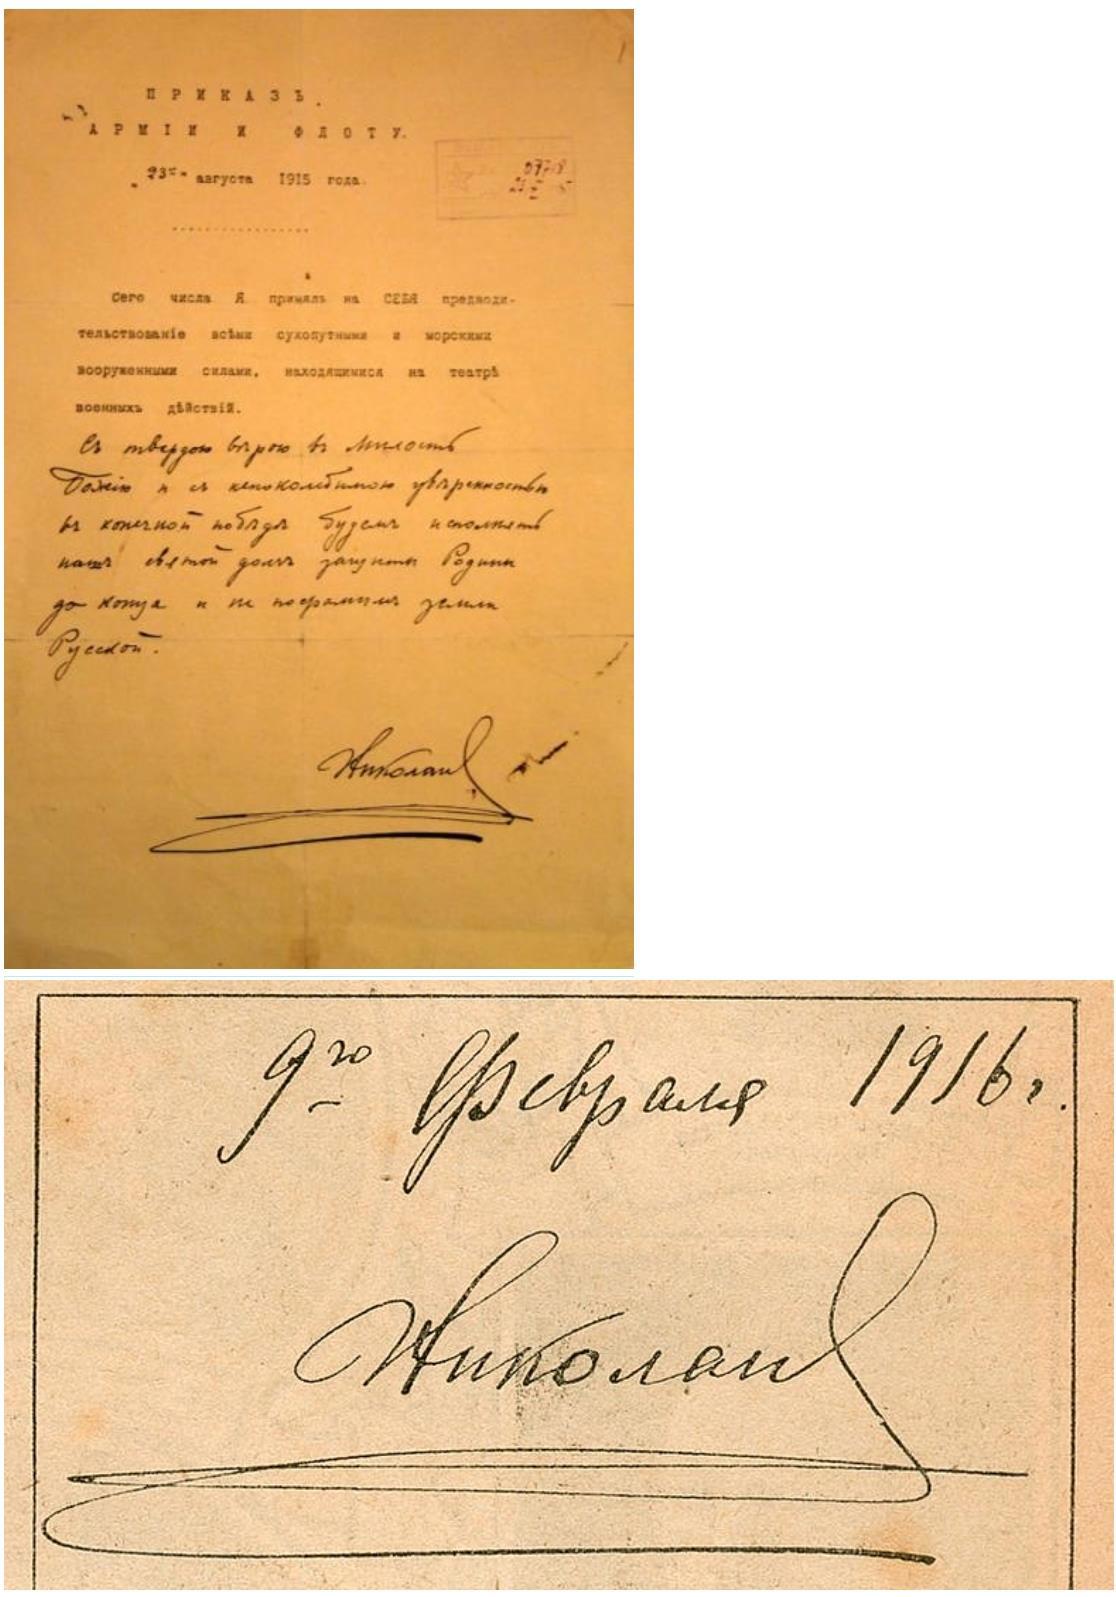 ПРИКАЗЪ.
АРМІИ И ФЛОТУ.
"23го" августа 1915 года.
Сего числа Я принялъ на СЕБЯ предводи-
тельствованіе всѣми сухопутными и морскими
вооруженными силами, находящимися на театрѣ
военныхъ дѣйствій.
Съ твердою вѣрою въ милость
Божію и съ непоколебимою увѣренностью
въ конечной побѣдѣ будемъ исполнять
нашъ святой долгъ защиты Родины
до конца и не посрамимъ земли
Русской.
Николай
9го Февраля 1916 г.
Николай